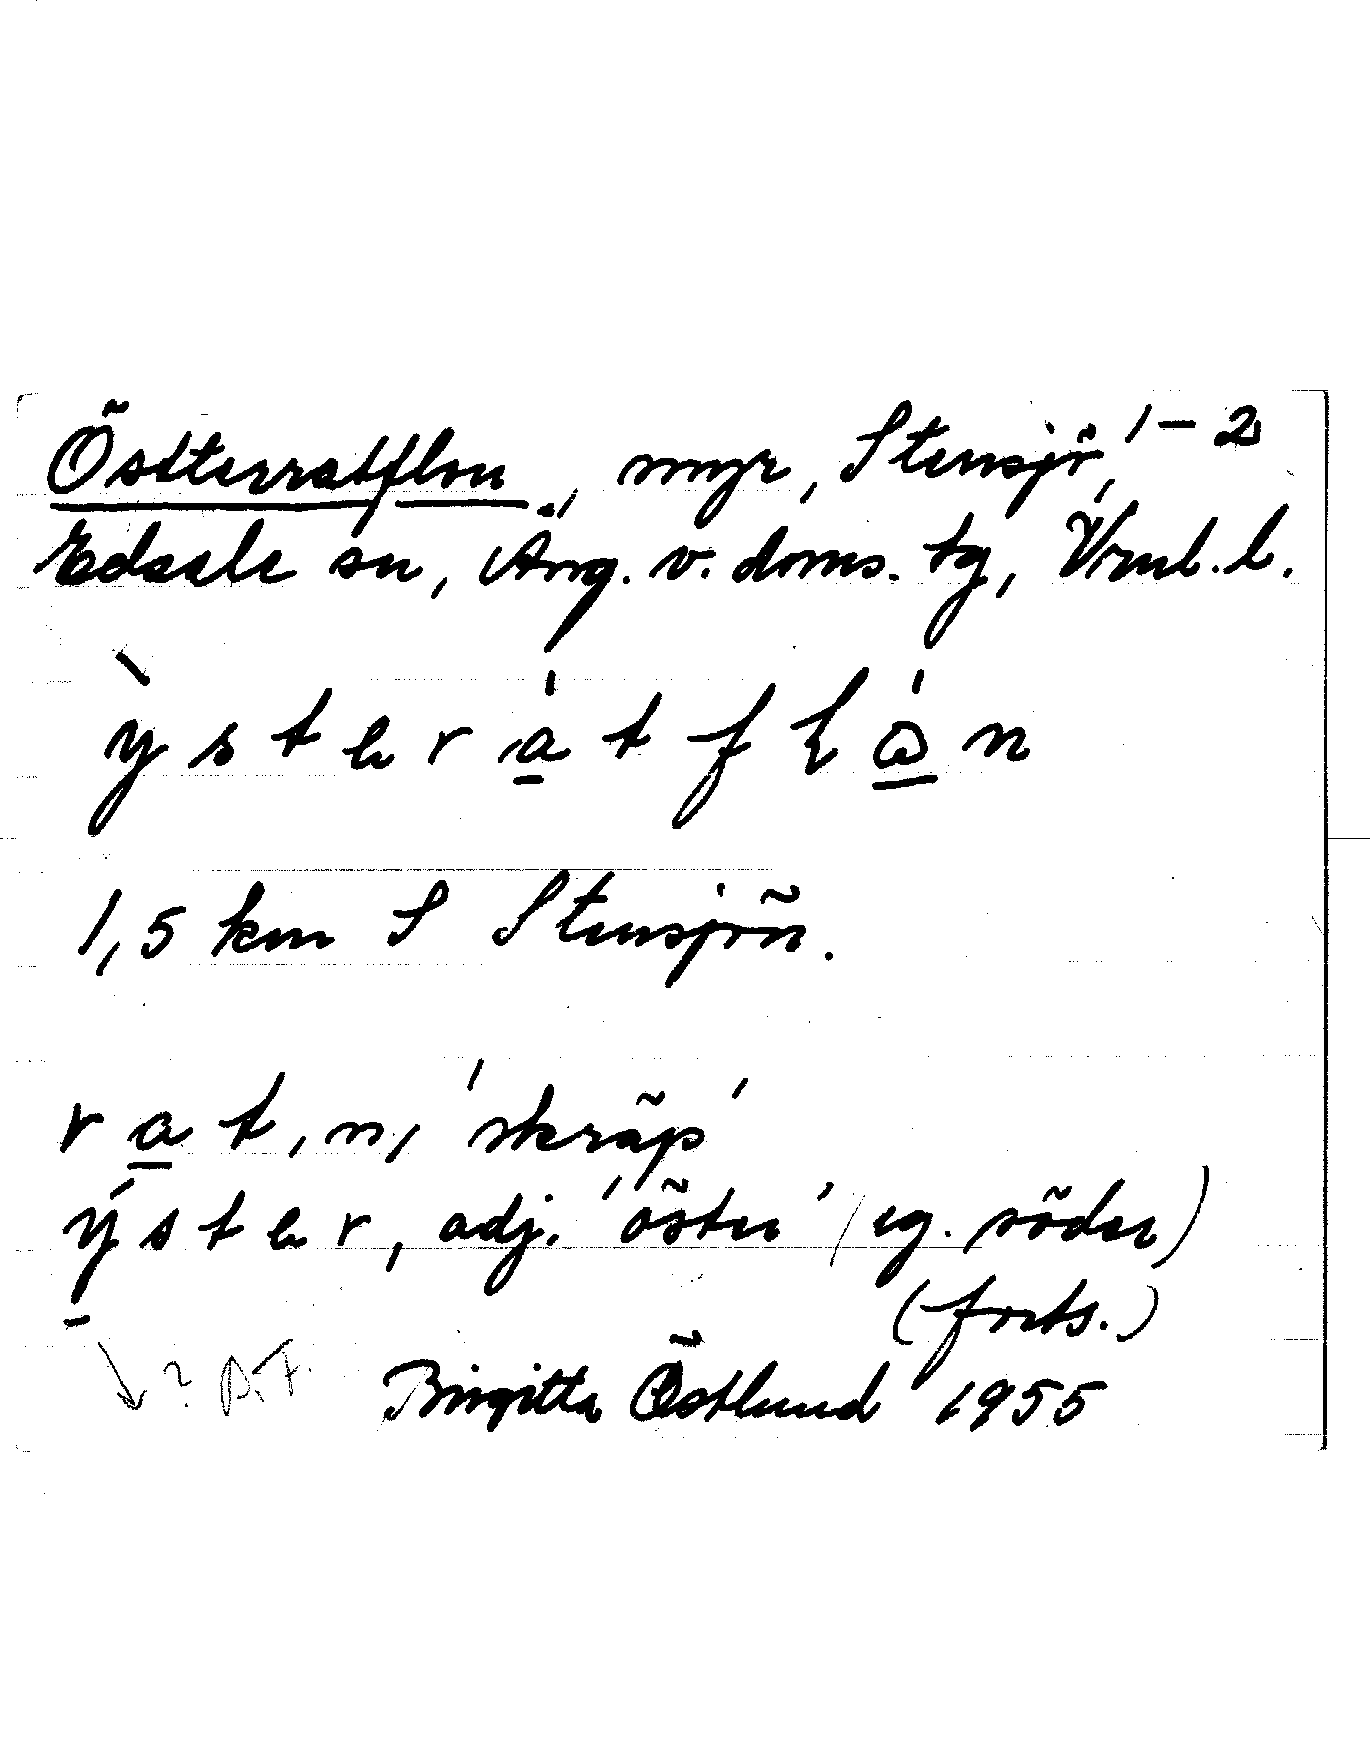 Österratflon, myr, Stensjö, 1-2
Edsele sn, Ång. v. doms. tg, Vnl. l.
y s t e r a t f l å n
1,5 km S Stensjön.
r a t, n, 'skräp'
y s t e r, adj. 'öster' (eg. söder)
(forts.)
? P.F. Birgitta Östlund 1955